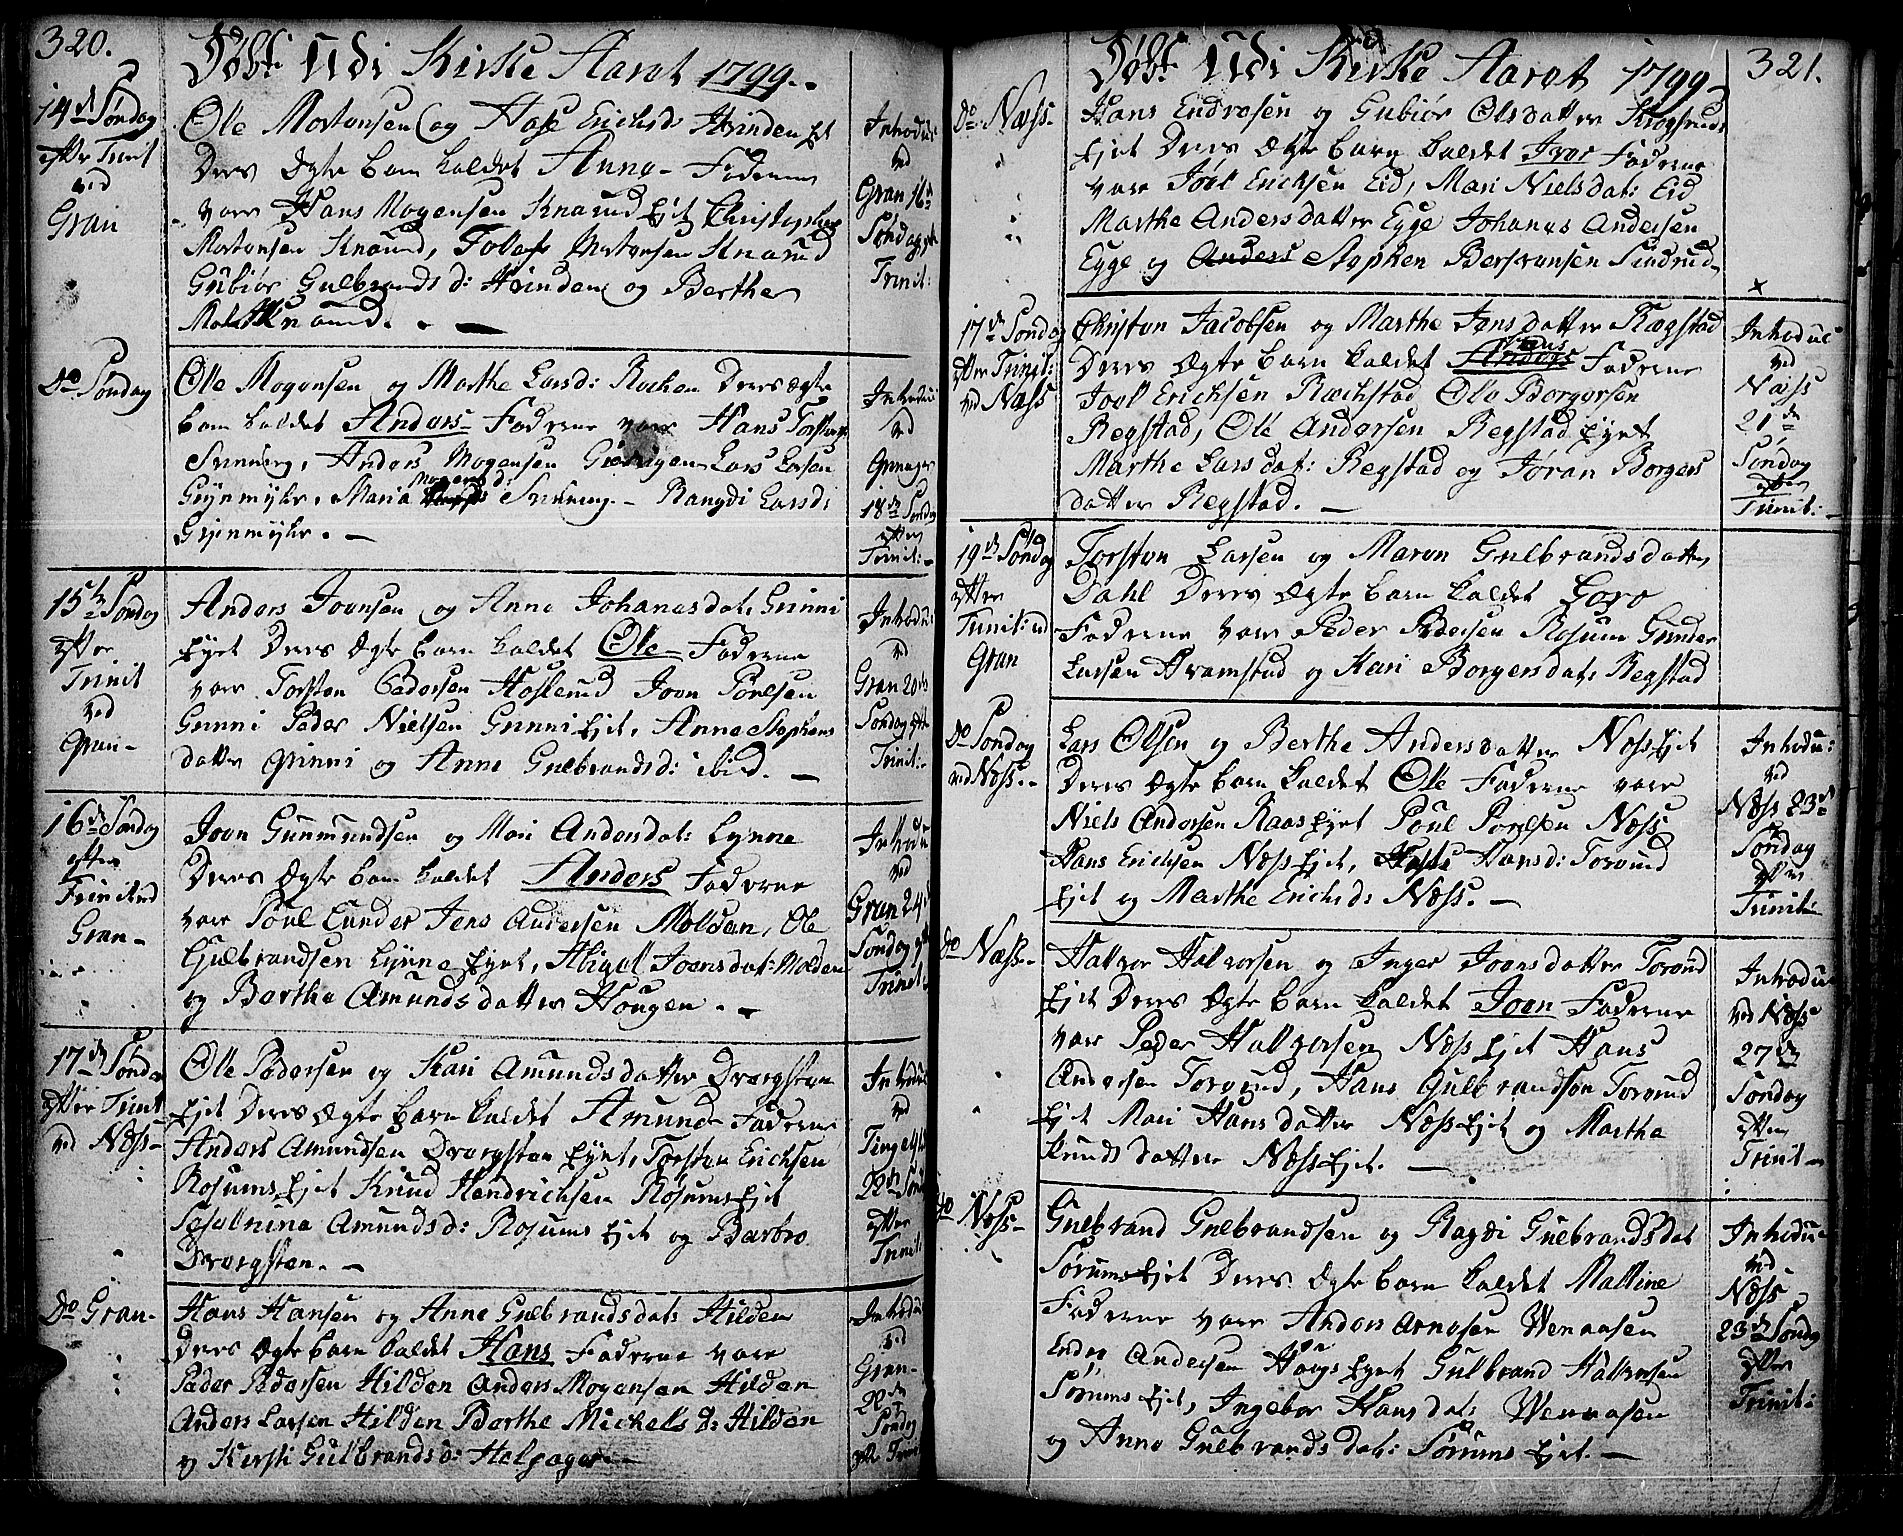 320.
Døbt Udi Kirke Aaret 1799.
14de Søndag
efter Trinit
ved
Gran
Ole Mortensen og Aase Erichsd: Hvinden Ejet
Deres Ægte barn kaldet Anne - Faderne
vare Hans Mogensen Knarud Ejet Christopher
Mortensen Knarud, Tollef Mortensen Knarud
Gubiør Gulbrandsd: Hvinden og Berthe
Knarud.
Introdu:
ved
Gran 16de
Søndag eft
Trinit:
Do Søndag
Ole Mogensen og Marthe Larsd: Rochen Deres Ægte
barn kaldet Anders - Faderne vare Hans
Anders Mogensen Lars Larsen
Grinmyhr, Maria Mogensd: - Rangdi Larsd:
Grinmyhr. -
Introdu:
ved
18de Søndag
efter
Trinit: -
15de Søndag
efter
Trinit
ved
Gran -
Anders Joensen og Anne Johanesdat: Grinni
Ejet Deres Ægte barn kaldet Ole - Faderne
vare Torsten Pedersen Joen Poulsen
Grinni Peder Nielsen Grinni Ejet, Anne Stephens
datter Grinni og Anne Gulbrandsd: ibid. -
Introdu:
ved
Gran 20de
Søndag eft
Trinit: -
16de Søndag
efter
Trinit ved
Gran -
Joen Gunmundsen og Mari Andersdat: Lynne
Deres Ægte barn kaldet Anders Faderne
vare Poul Lunder Jens Andersen Molden, Ole
Gulbrandsen Lynne Ejet, Abigel Joensdat: Molden
og Berthe Amundsdatter Hougen. -
Introdu
ved
Gran 24de
Søndag eft
Trinit:
17de Søndag
efter Trinit
ved Næss -
Ole Pedersen og Kari Amundsdatter Dvergsten
Ejet Deres Ægte barn kaldet Amund - Faderne
Anders Amundsen Dvergsten Ejet, Torsten Erichsen
Rosums Ejet Knud Hendrichsen Rosums Ejet
Amundsd: Rosums Ejet og Barbro
Dvergsten. -
Introdu:
ved
22de Søndag
efter
Trinit:
Do Gran -
Hans Hansen og Anne Gulbrandsdat: Hilden
Deres Ægte barn kaldet Hans Faderne vare
Peder Pedersen Hilden Anders Mogensen Hilden
Anders Larsen Hilden Berthe Michels D: Hilden
og Kirsti Gulbrandsd: Helgager. -
Introdu:
ved
Gran -
22de
Søndag
eft Trinit
Døbt Udi Kirke Aaret 1799
321.
Do Næss -
Hans Endresen og Gubiør Olsdatter
Ejet Deres Ægte barn kaldet Iver Faderne
vare Joel Erichsen Eid, Mari Nielsdat: Eid
Marthe Andersdatter Egge Johanes Andersen
Egge og Anders Stephen Bersvensen Sindrud -
17de Søndag
efter Trinit:
ved Næss
Christen Jacobsen og Marthe Jensdatter Rægstad
Deres Ægte barn kaldet Anders Jens Faderne
Joel Erichsen Ræchstad Ole Borgersen
Regstad, Ole Andersen Regstad Ejet
Marthe Larsdat: Regstad og Jøran Borgers
datter Regstad. -
Introdu:
ved
Næss
21de
Søndag
efter
Trinit: -
19de Søndag
efter
Trinit: ved
Gran
Torsten Larsen og Maren Gulbrandsdatter
Dahl Deres Ægte barn kaldet Lare
Faderne vare Peder Pedersen Rosum Gunder
Larsen Framstad og Kari Borgersdat: Regstad
Do Søndag
ved Næss. -
Lars Olsen og Berthe Andersdatter Næss Ejet
Deres Ægte barn kaldet Ole Faderne vare
Niels Andersen Raas Ejet Poul Poulsen Næss
Hans Erichsen Næss Ejet, Hansd: Torerud
Ejet og Marthe Erichsd: Næss. -
Introdu:
ved
Næss 23de
Søndag
efter
Trinit -
Do Næss -
Halvor Halvorsen og Inger Joensdatter Torerud
Ejet Deres Ægte barn kaldet Joen Faderne
var Peder Halvorsen Næss Ejet Hans
Andersen Torerud, Hans Gulbrandsen Torerud
Ejet Mari Hansdatter Næss Ejet og Marthe
Knudsdatter Næss Ejet. -
Introdu:
ved Næss
27de
Søndag
efter
Trinit -
Do Næss -
Gulbrand Gulbrandsen og Ragdi Gulbrandsdat
Sørums Ejet Deres Ægte barn kaldet Malline
Faderne vare Anders Arnesen Wennasen
Endre Andersen Haugs Ejet Gulbrand Halvorsen
Sørums Ejet, Ingebor Hansdat: Wennasen
og Anne Gulbrandsdat: Sørums Ejet. -
Introdu -
ved
Næss
23de Søndag
efter
Trinit: